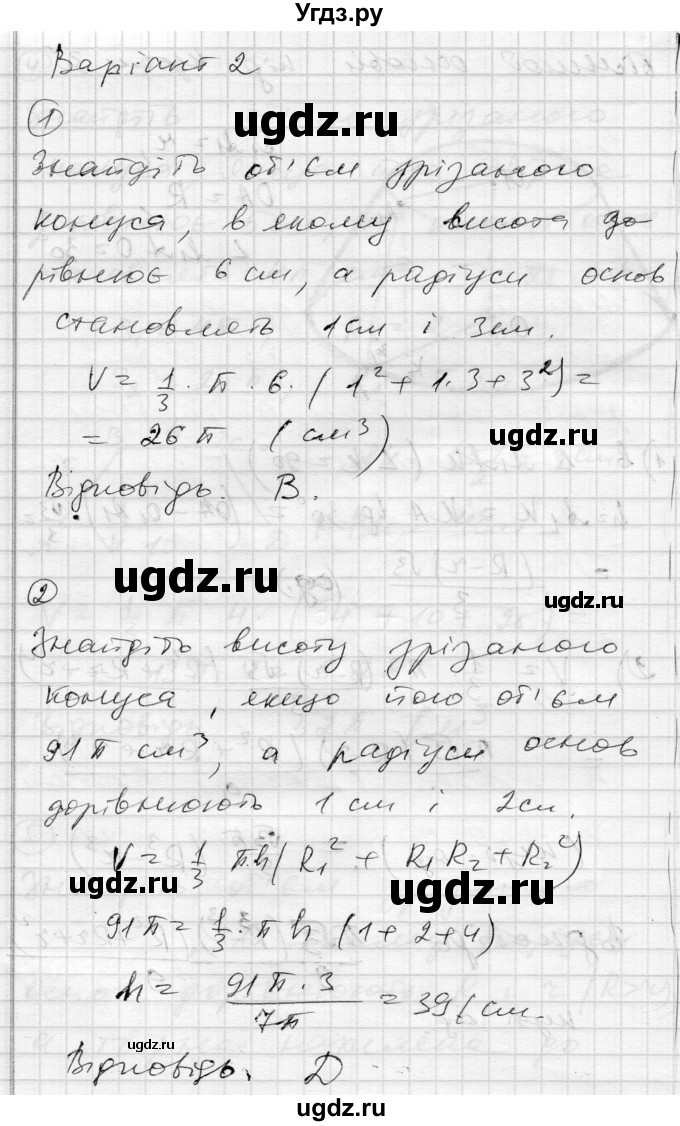 Угдз.ру
Варіант 2
ugdz.ru
1
Знайдіть об'єм зрізаного
конуса, в якому висота до
рівнює 6 см, а радіуси основ
становлять 1 см і 3 см.
V = 1/3 · π · 6 · (1² + 1·3 + 3²) =
= 26 π (см³)
ugdz.ru
Відповідь: В.
ugdz.ru
2
ugdz.ru
Знайдіть висоту зрізаного
конуса, якщо його об'єм
91π см³, а радіуси основ
дорівнюють 1 см і 2 см.
V = 1/3 πh(R₁² + R₁R₂ + R₂²)
ugdz.ru
ugdz.ru
91π = 1/3 · πh (1+2+4)
h = 91π·3 / 7π = 39 (см.
ugdz.ru
Відповідь. D
ugdz.ru